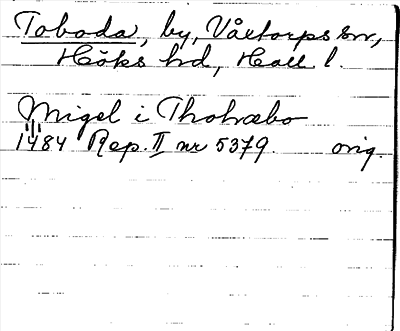 Toboda, by, Våxtorps sn,
Höks hd, Hall l.
Migel i Thohræbo
1484 Rep. II nr 5379. orig.